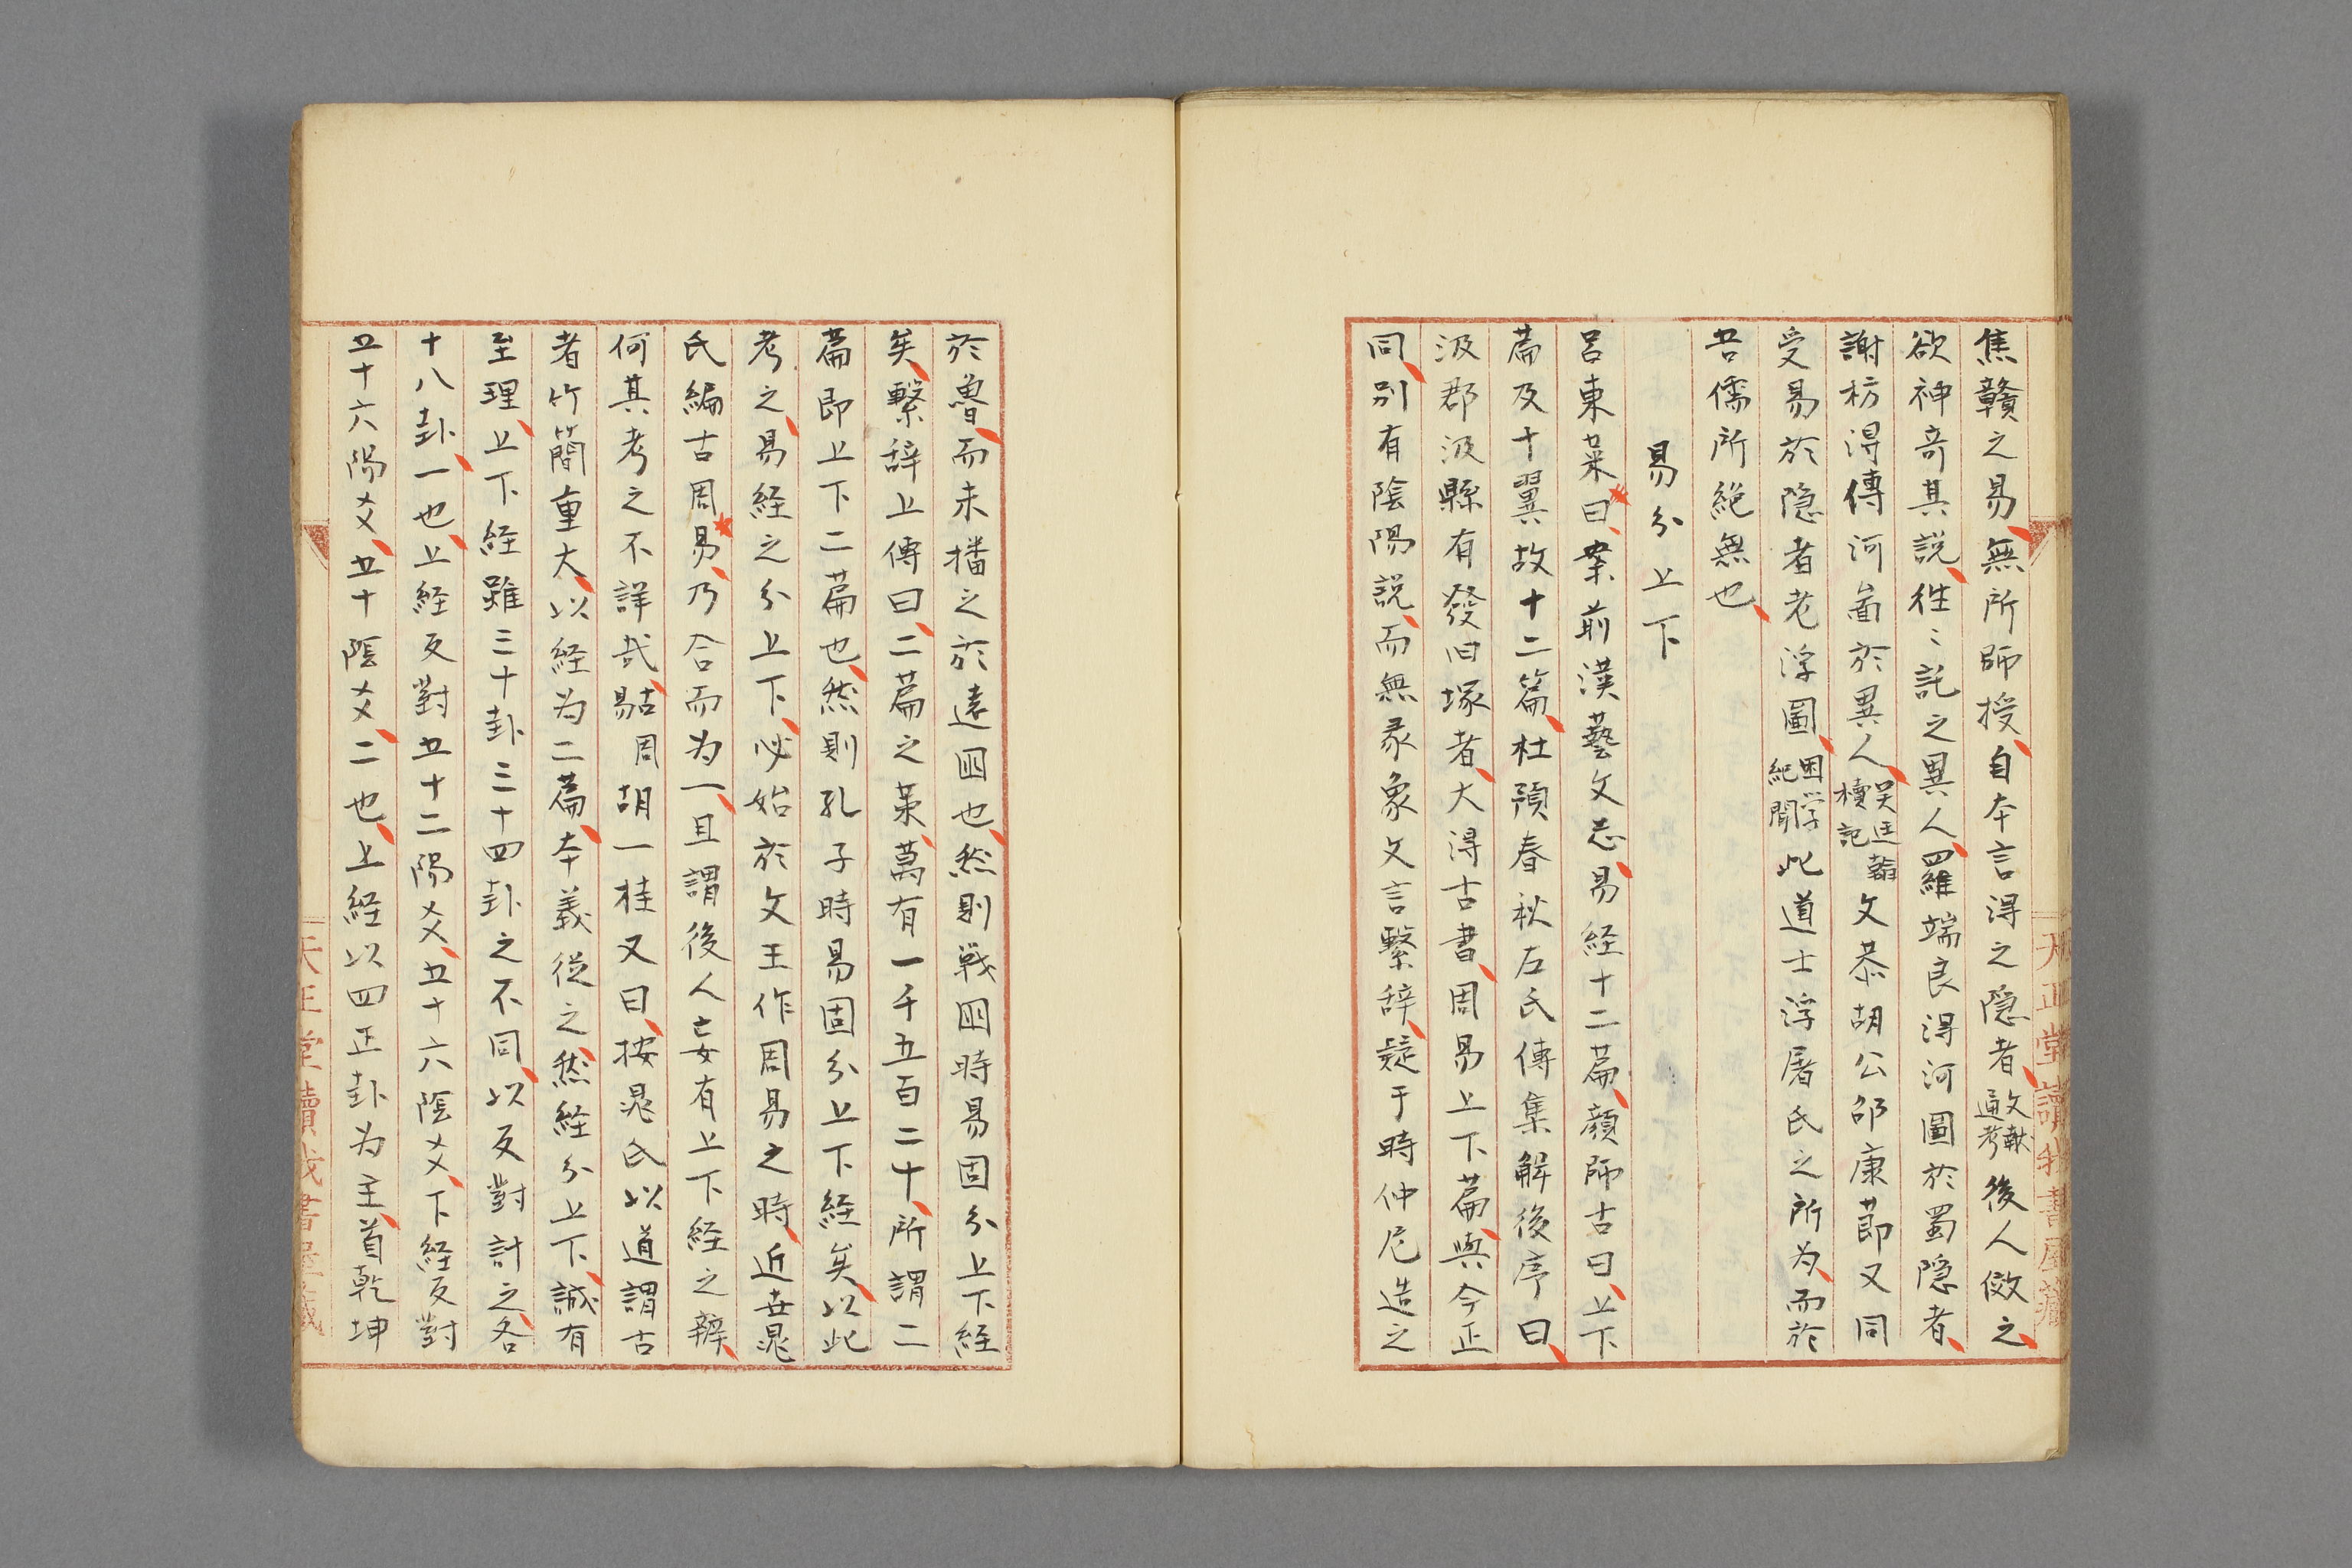 焦贛之易無所師授自本言得之隠者文献通考後人傚之
欲神竒其説徃〻託之異人羅端良得河圖於蜀隠者
謝枋得傳河圖於異人吴廷翰櫝記文恭胡公邵康莭又同
受易於隠者老浮圖困学紀聞此道士浮屠氏之所为而於
吾儒所絶無也
易分上下
吕東莱曰案前漢藝文志易経十二篇顔師古曰上下
篇及十翼故十二篇杜預春秋左氏傳集解後序曰
汲郡汲縣有發旧塚者大得古書周易上下篇與今正
同別有陰陽説而無彖象文言繋辞疑于時仲尼造之
於魯而未播之於遠囯也然則戦囯時易固分上下経
矣繋辞上傳曰二篇之策萬有一千五百二十所謂二
篇即上下二篇也然則孔子時易固分上下経矣以此
考之易経之分上下必始於文王作周易之時近世晁
氏編古周易乃合而为一且謂後人妄有上下経之辨
何其考之不詳㢤古周易胡一桂又曰按晁氏以道謂古
者竹簡重大以経为二篇本義從之然経分上下誠有
至理上下経雖三十卦三十四卦之不同以反對計之各
十八卦一也上経反對五十二陽爻五十六陰爻下経反對
五十六陽爻五十陰爻二也上経以四正卦为主首乾坤
天正堂讀我書屋藏
天正堂讀我書屋藏